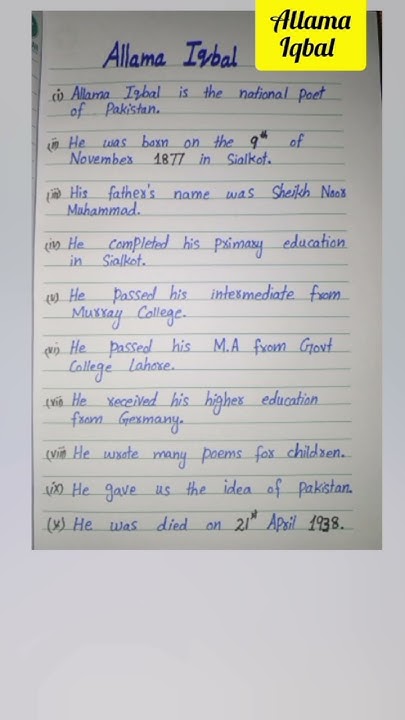 Allama
Iqbal
Allama Iqbal
(i) Allama Iqbal is the national poet
of Pakistan.
(ii) He was born on the 9th of
November 1877 in Sialkot.
(iii) His father's name was Sheikh Noor
Muhammad.
(iv) He completed his primary education
in Sialkot.
(v) He passed his intermediate from
Murray College.
(vi) He passed his M.A from Govt
College Lahore.
(vii) He received his higher education
from Germany.
(viii) He wrote many poems for children.
(ix) He gave us the idea of Pakistan.
(x) He was died on 21st April 1938.